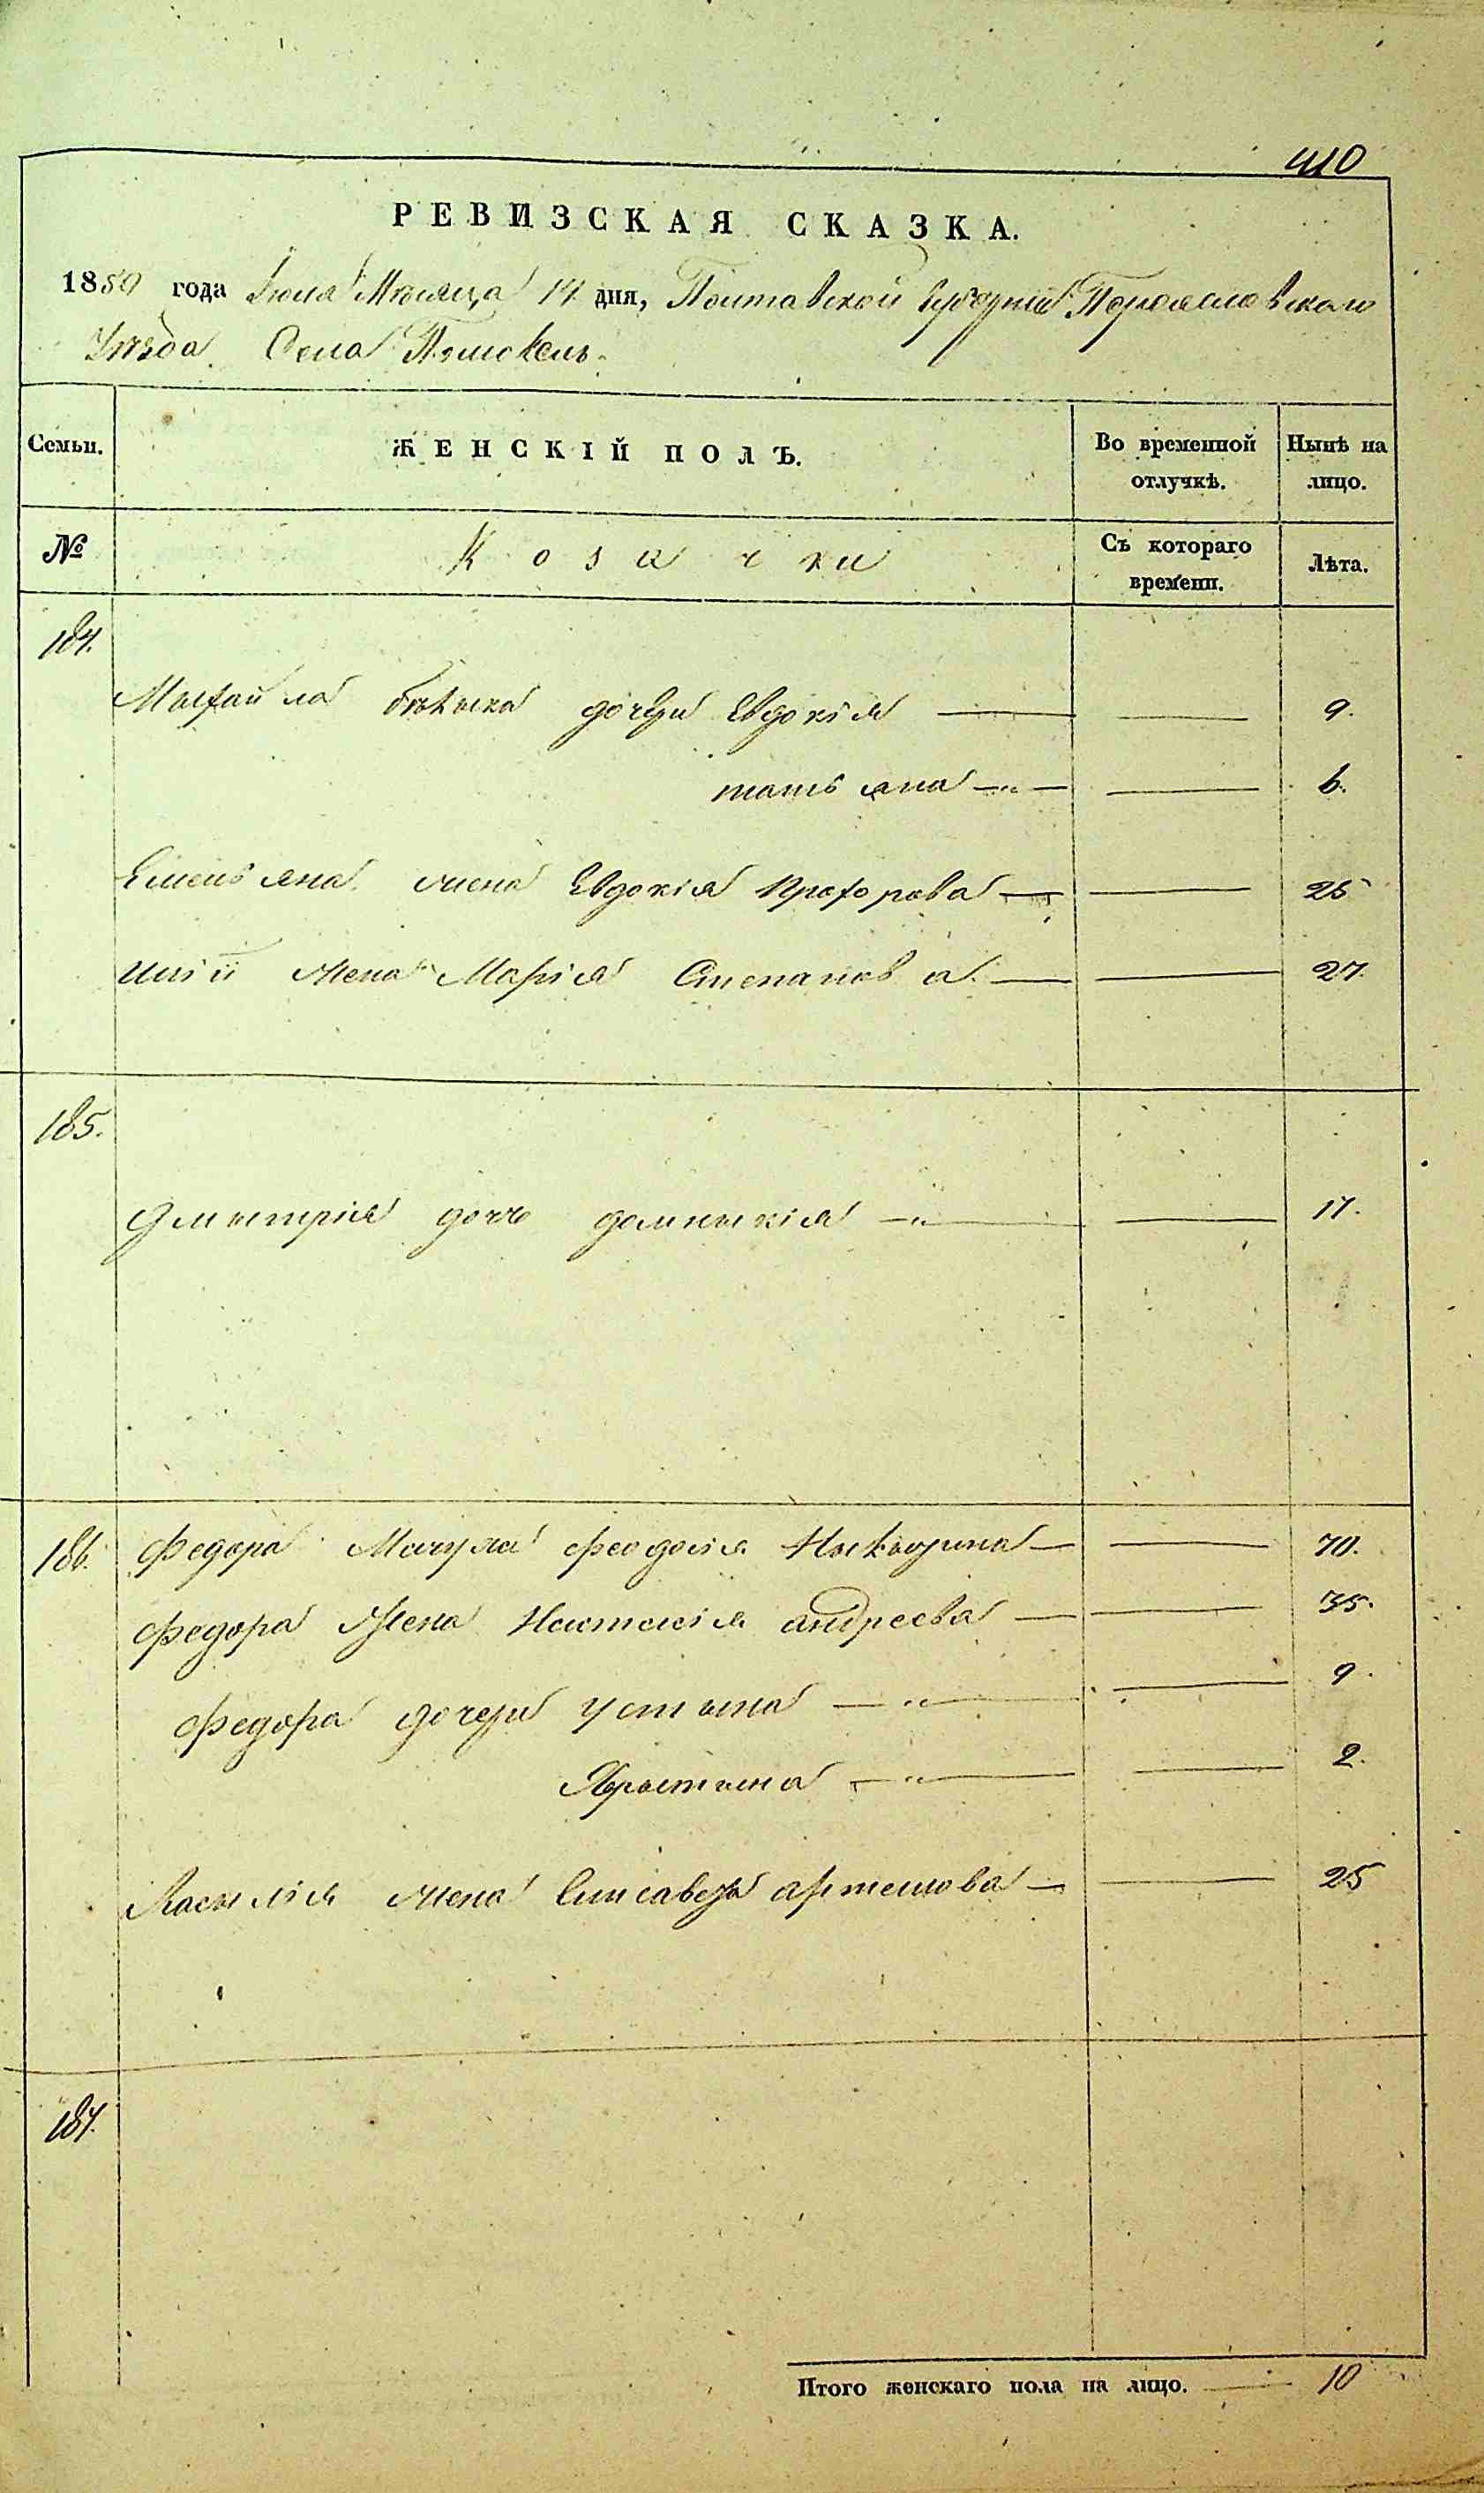 410
РЕВИЗСКАЯ СКАЗКА.
1850 года Июля Месяца 14 дня, Полтавской Губернии Переяславского
Уезда Села Помокель.
Семьи.
ЖЕНСКІЙ ПОЛЪ.
Во временной отлучкѣ.
Нынѣ на лицо.
№
Козачки
Съ котораго времени.
Лѣта.
184.
Мыхайла дочери Евдокія 9.
татьяна 6.
Емельяна жена Евдокія Прохорова 25
жена Марія Степанова 27.
185.
Дмытрія дочь домныкія 17.
186.
Федора Мачуха феодосія 70.
Федора Жена Наталія андреева 35.
Федора дочери устына 9.
Хрыстына 2.
Василія жена Елисавета артемова 25
187.
Итого женскаго пола на лицо. 10